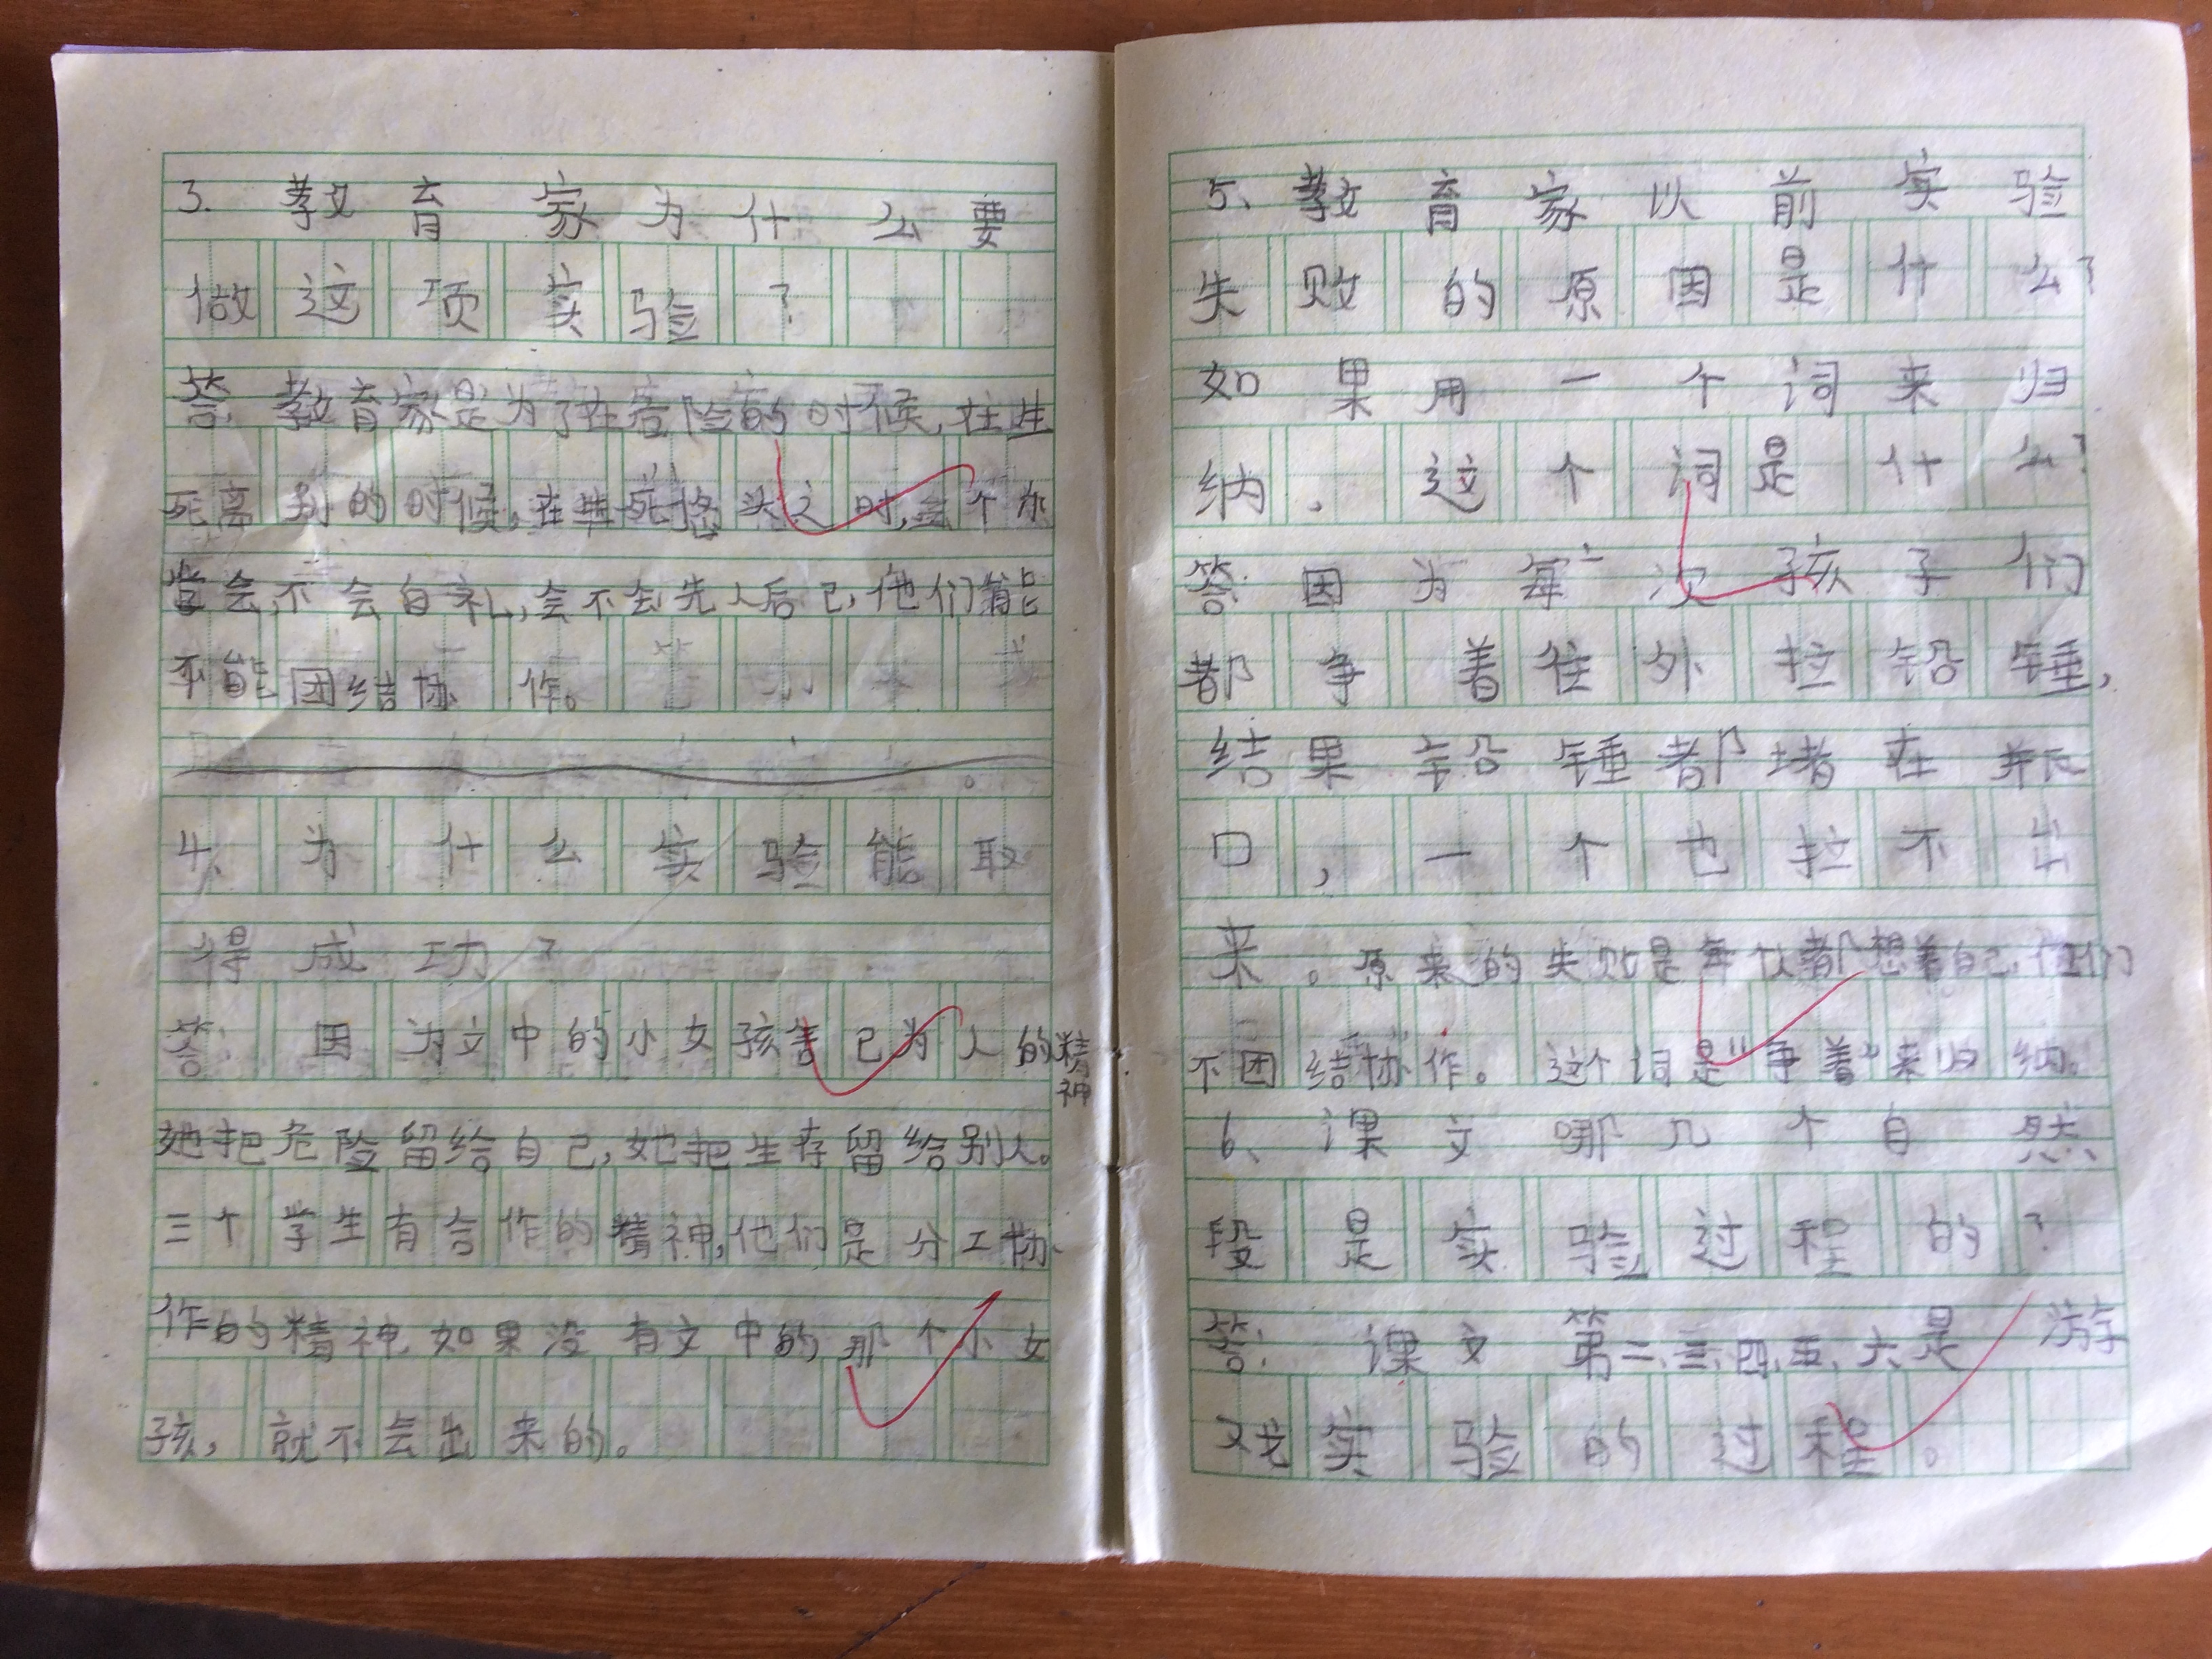 3. 教育家为什么要
做这项实验?
答: 教育家是为了在危险的时候,在生
死离别的时候,在生死悠关之时,会不
会不会自礼,会不会先人后己,他们能
不能团结协作。
4、为什么实验能取
得成功?
答: 因为文中的小女孩舍己为人的精神
她把危险留给自己,她把生存留给别人。
三个学生有合作的精神,他们是分工协
作的精神,如果没有文中的那个小女
孩,就不会出来的。
5、教育家以前实验
失败的原因是什么?
如果用一个词来归
纳,这个词是什么?
答: 因为每次孩子们
都争着往外拉铅锤,
结果铅锤都堵在瓶
口,一个也拉不出
来。原来的失败是每次都想着自己,他们
不团结协作。这个词是"争着"来归纳。
6、课文哪几个自然
段是实验过程的?
答: 课文第二、三、四、五、六是游
戏实验的过程。